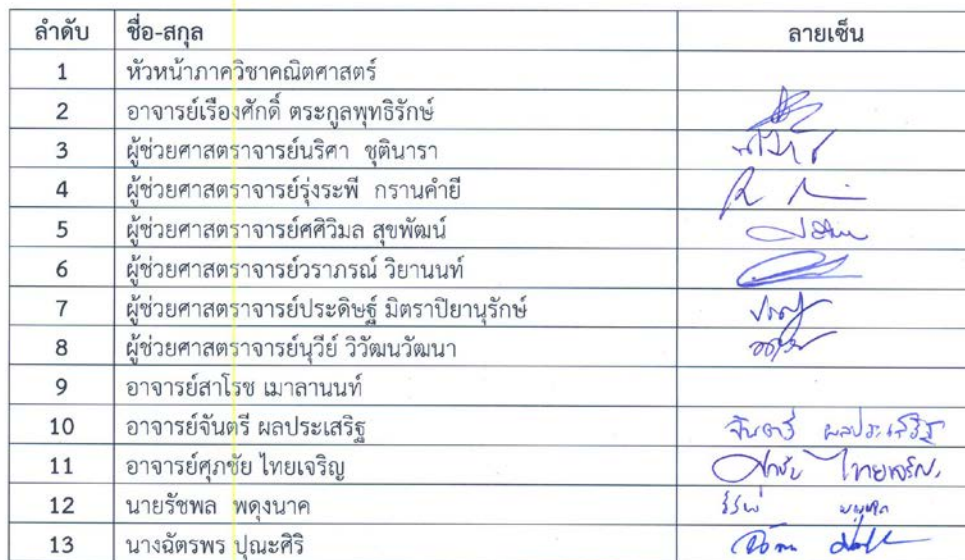 ลำดับ ชื่อ-สกุล ลายเซ็น
1 หัวหน้าภาควิชาคณิตศาสตร์
2 อาจารย์เรืองศักดิ์ ตระกูลพุทธิรักษ์
3 ผู้ช่วยศาสตราจารย์นริศา ชุตินารา
4 ผู้ช่วยศาสตราจารย์รุ่งระพี กรานคำยี
5 ผู้ช่วยศาสตราจารย์ศศิวิมล สุขพัฒน์
6 ผู้ช่วยศาสตราจารย์วราภรณ์ วิยานนท์
7 ผู้ช่วยศาสตราจารย์ประดิษฐ์ มิตราปิยานุรักษ์
8 ผู้ช่วยศาสตราจารย์นุวีย์ วิวัฒนวัฒนา
9 อาจารย์สาโรช เมาลานนท์
10 อาจารย์จันตรี ผลประเสริฐ จันตรี ผลประเสริฐ
11 อาจารย์ศุภชัย ไทยเจริญ ศุภชัย ไทยเจริญ
12 นายรัชพล พดุงนาค
13 นางฉัตรพร ปุณะศิริ